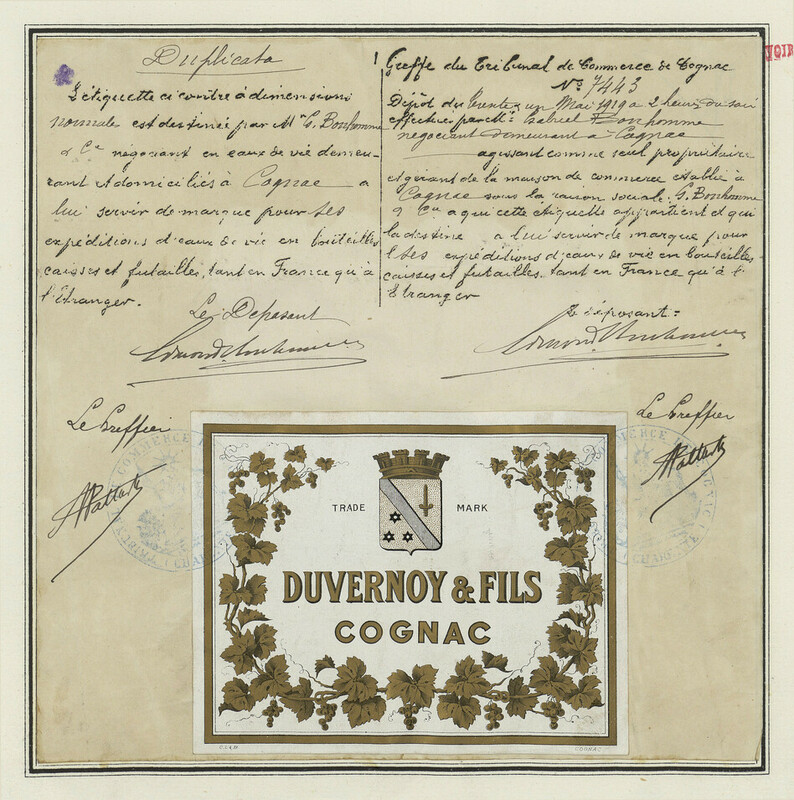 Duplicata
L'étiquette ci contre à dimensions
normales est destinée par Mr G. Bonhomme
& Cie négociant en eaux de vie demeu-
rant et domiciliés à Cognac à
lui servir de marque pour ses
expéditions d'eaux de vie en bouteilles
caisses et futailles, tant en France qu'à
l'Étranger.
Le Déposant
Le Greffier
Greffe du Tribunal de Commerce de Cognac
No 7443
Dépôt du trente un Mai 1919 à 2 heures du soir
effectué par Mr Gabriel Bonhomme
négociant demeurant à Cognac
agissant comme seul propriétaire
et gérant de la maison de commerce établie à
Cognac sous la raison sociale: G. Bonhomme
& Cie à qui cette étiquette appartient et qui
la destine à lui servir de marque pour
ses expéditions d'eaux de vie en bouteilles
caisses et futailles, tant en France qu'à l'
Etranger
Le déposant =
Le Greffier
TRADE MARK
DUVERNOY & FILS
COGNAC
COGNAC